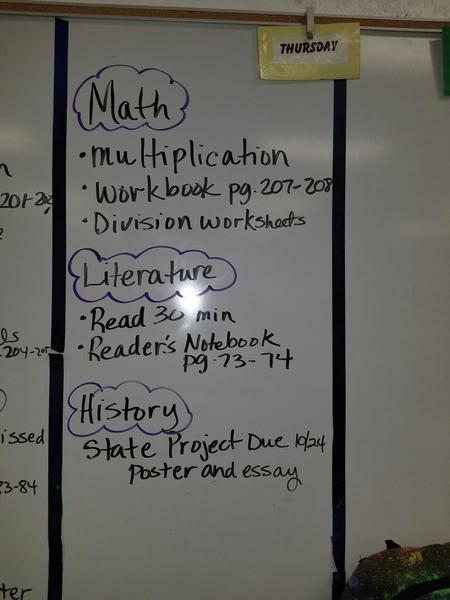 THURSDAY
Math
• multiplication
• Workbook pg. 207-208
• Division worksheets
Literature
• Read 30 min
• Reader's Notebook
pg. 73-74
History
State Project Due 10/24
poster and essay
issed